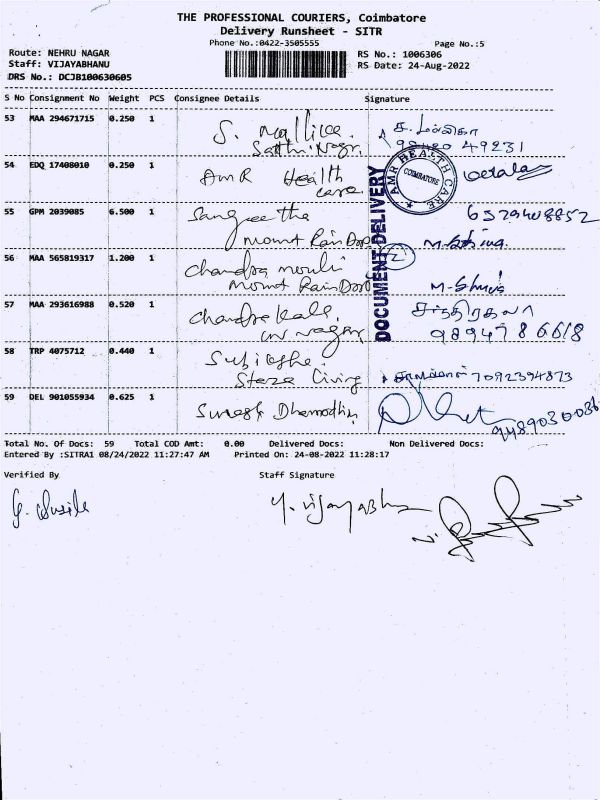 THE PROFESSIONAL COURIERS, Coimbatore
Delivery Runsheet - SITR
Phone No.:0422-3505555
Page No.:5
Route: NEHRU NAGAR
RS No.: 1006306
Staff: VIJAYABHANU
RS Date: 24-Aug-2022
DRS No.: DCJB100630605
S No Consignment No Weight PCS Consignee Details Signature
53 MAA 294671715 0.250 1 S. Mallika
Satthi Nagar
ச. மல்லிகா
54 EDQ 17408010 0.250 1 AMR Health care
AMR HEALTH CARE
COIMBATORE
DOCUMENT DELIVERY
55 GPM 2039085 6.500 1 Sangeetha
Mount Rain Dorf
6379408852
56 MAA 565819317 1.200 1 Chandra mouli
Mount Rain Dorf
57 MAA 293616988 0.520 1 Chandrakala
சந்திரகலா
98947 86618
58 TRP 4075712 0.440 1
Living
7092394873
59 DEL 901055934 0.625 1 Suresh Dhamodhin
9489030036
Total No. Of Docs: 59 Total COD Amt: 0.00 Delivered Docs: Non Delivered Docs:
Entered By :SITRA1 08/24/2022 11:27:47 AM Printed On: 24-08-2022 11:28:17
Verified By
Staff Signature